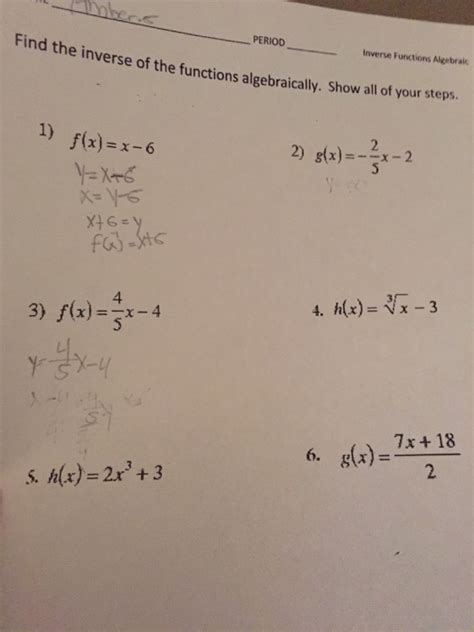 Amber.s
PERIOD
Inverse Functions Algebraic
Find the inverse of the functions algebraically. Show all of your steps.
1) f(x) = x – 6
y = x – 6
x = y – 6
x + 6 = y
f(x) = x + 6
2) g(x) = –2/5x – 2
3) f(x) = 4/5x – 4
y = 4/5x – 4
4. h(x) = ∛x – 3
5. h(x) = 2x³ + 3
6. g(x) = 7x + 18/2